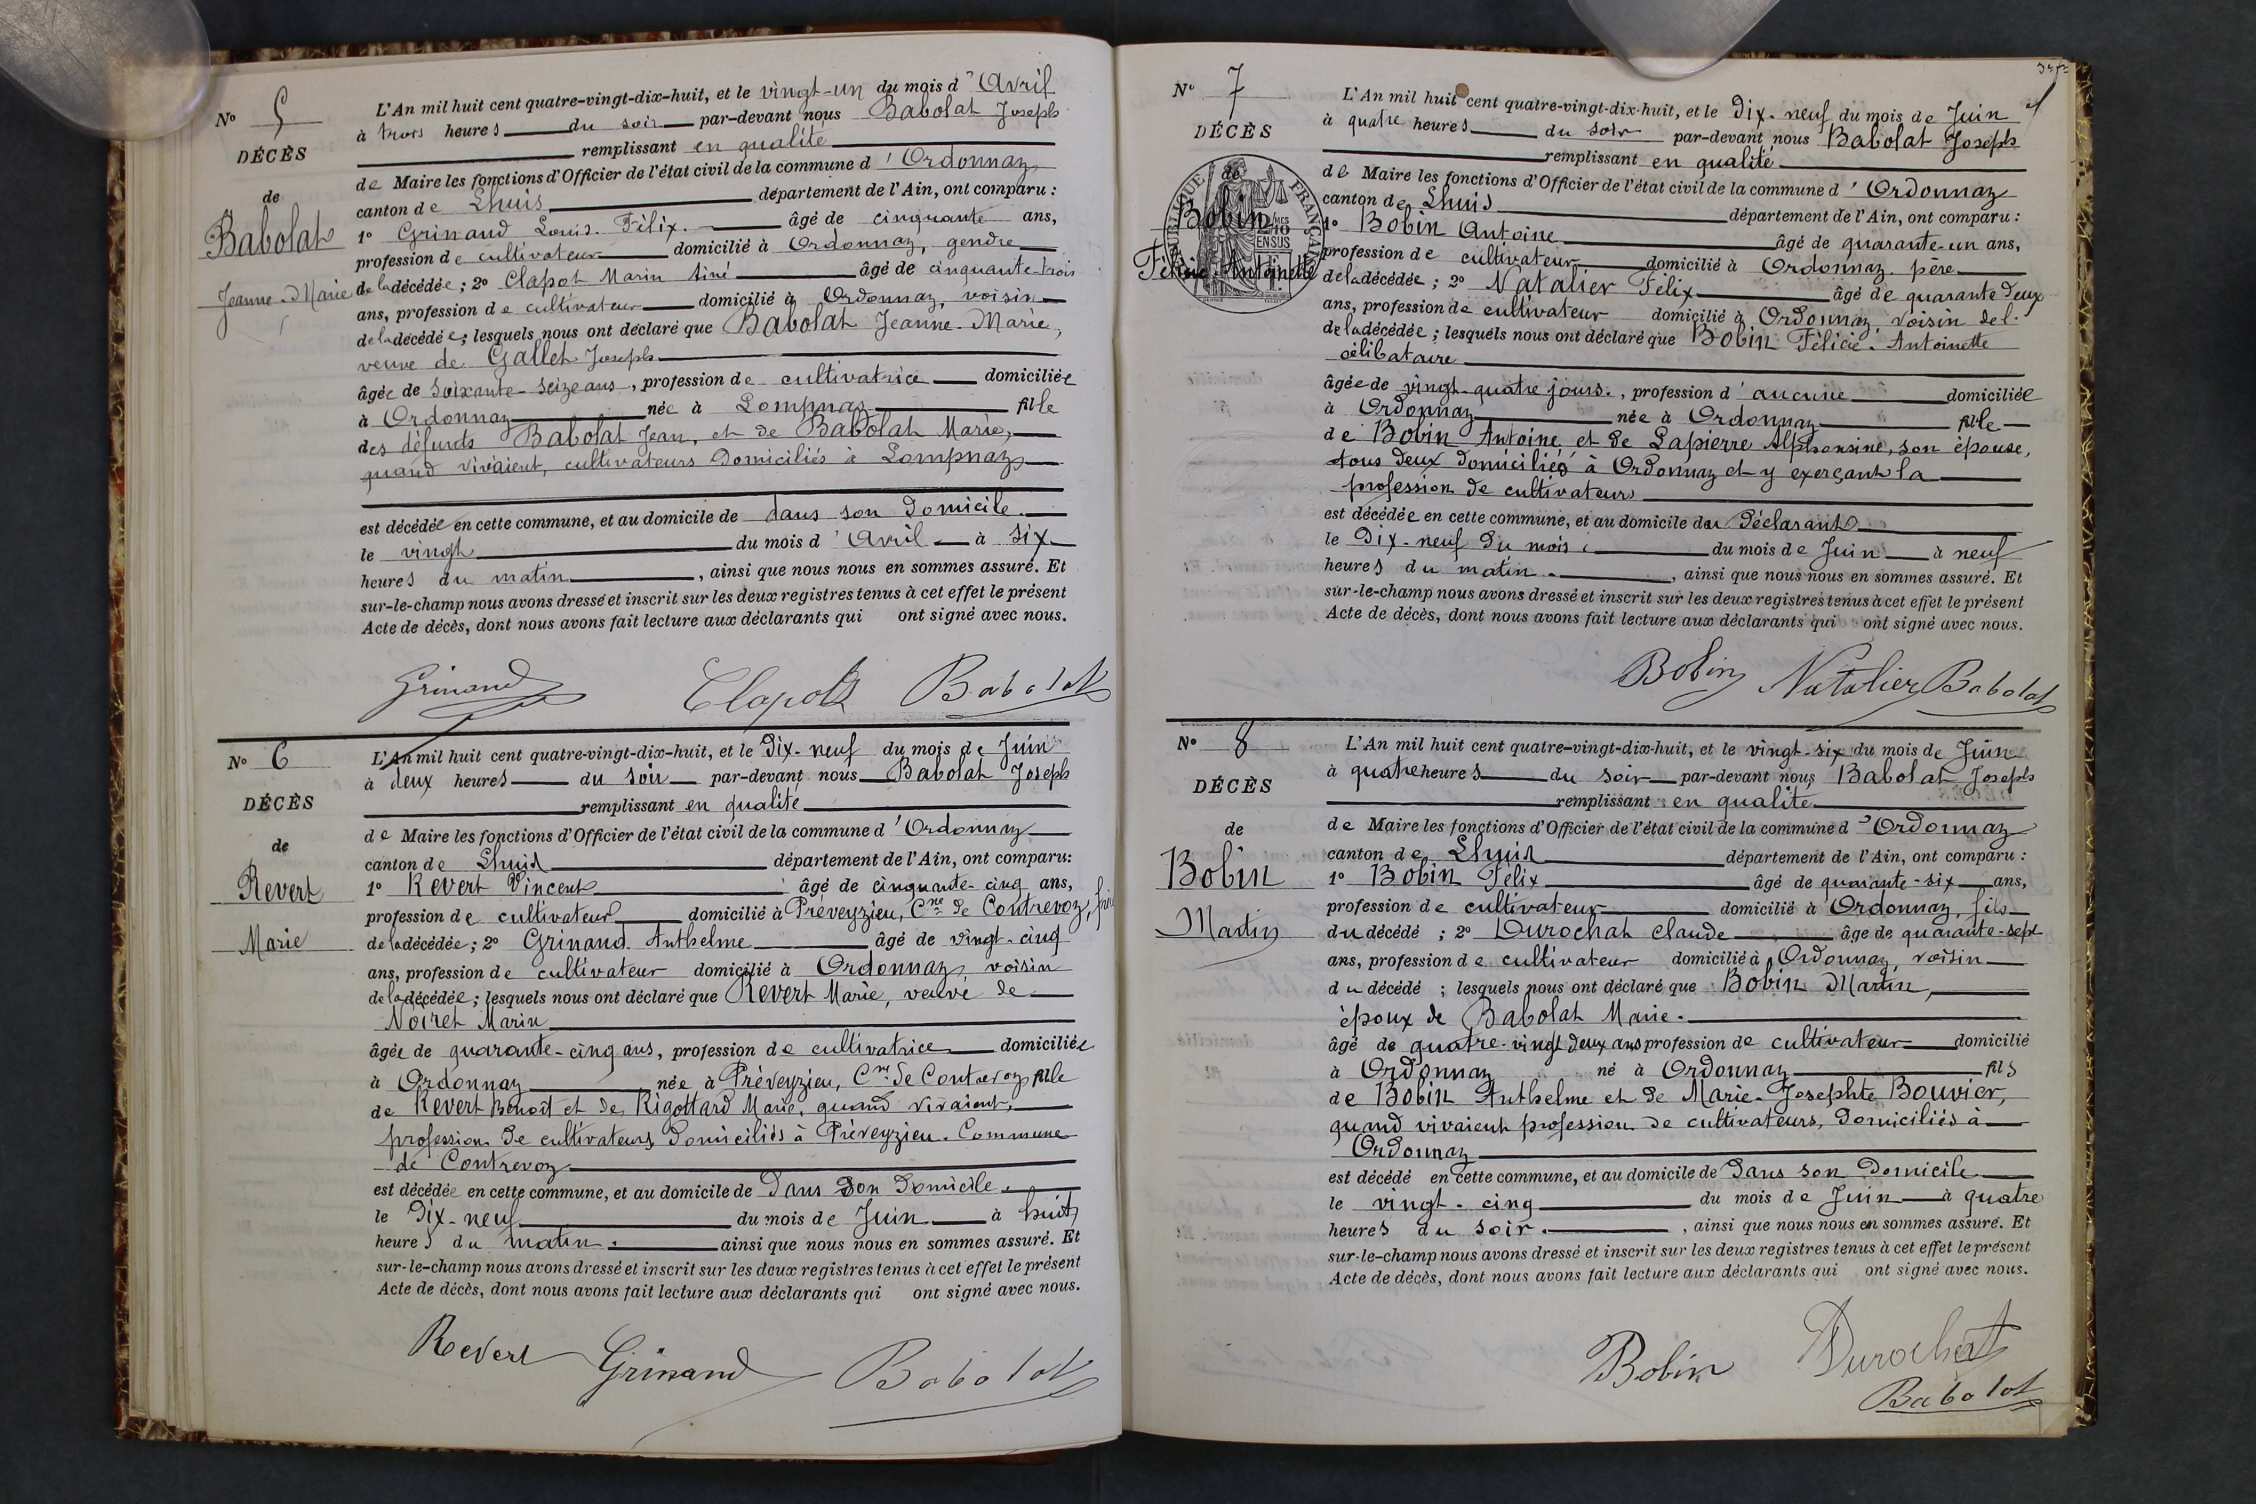 N° 5
DÉCÈS
de
Babolat
Jeanne-Marie
L'An mil huit cent quatre-vingt-dix-huit, et le vingt-un du mois d'Avril
à trois heures du soir par-devant nous Babolat Joseph
remplissant en qualité
de Maire les fonctions d'Officier de l'état civil de la commune d'Ordonnaz
canton de Lhuis département de l'Ain, ont comparu :
1° Grinand Louis-Félix âgé de cinquante ans,
profession de cultivateur domicilié à Ordonnaz, gendre
de la décédée ; 2° Clapot Marin âgé de cinquante-trois
ans, profession de cultivateur domicilié à Ordonnaz, voisin
de la décédée ; lesquels nous ont déclaré que Babolat Jeanne-Marie,
veuve de Gallet Joseph
âgée de soixante-seize ans, profession de cultivatrice domiciliée
à Ordonnaz née à Lompnaz fille
des défunts Babolat Jean, et de Babolat Marie,
quand vivaient, cultivateurs domiciliés à Lompnaz
est décédée en cette commune, et au domicile de dans son domicile.
le vingt du mois d'Avril à six
heures du matin, ainsi que nous nous en sommes assuré. Et
sur-le-champ nous avons dressé et inscrit sur les deux registres tenus à cet effet le présent
Acte de décès, dont nous avons fait lecture aux déclarants qui ont signé avec nous.
Grinand Clapot Babolat
N° 6
DÉCÈS
de
Revert
Marie
L'An mil huit cent quatre-vingt-dix-huit, et le Dix-neuf du mois de Juin
à deux heures du soir par-devant nous Babolat Joseph
remplissant en qualité
de Maire les fonctions d'Officier de l'état civil de la commune d'Ordonnaz
canton de Lhuis département de l'Ain, ont comparu :
1° Revert Vincent âgé de cinquante-cinq ans,
profession de cultivateur domicilié à Préveyzieu, Cne de Contrevoz,
de la décédée ; 2° Grinand Anthelme âgé de vingt-cinq
ans, profession de cultivateur domicilié à Ordonnaz, voisin
de la décédée ; lesquels nous ont déclaré que Revert Marie, veuve de
Noiret Marin
âgée de quarante-cinq ans, profession de cultivatrice domiciliée
à Ordonnaz née à Préveyzieu, Cne de Contrevoz fille
de Revert Benoît et de Rigottard Marie, quand vivaient,
profession de cultivateurs domiciliés à Préveyzieu. Commune
de Contrevoz
est décédée en cette commune, et au domicile de Dans son Domicile.
le Dix-neuf du mois de Juin à huit
heures du matin. ainsi que nous nous en sommes assuré. Et
sur-le-champ nous avons dressé et inscrit sur les deux registres tenus à cet effet le présent
Acte de décès, dont nous avons fait lecture aux déclarants qui ont signé avec nous.
Revert Grinand Babolat
N° 7
DÉCÈS
de
Bobin
Félicie-Antoinette
RÉPUBLIQUE FRANÇAISE
L'An mil huit cent quatre-vingt-dix-huit, et le Dix-neuf du mois de Juin
à quatre heures du soir par-devant nous Babolat Joseph
remplissant en qualité
de Maire les fonctions d'Officier de l'état civil de la commune d'Ordonnaz
canton de Lhuis département de l'Ain, ont comparu :
1° Bobin Antoine âgé de quarante-un ans,
profession de cultivateur domicilié à Ordonnaz. père
de la décédée ; 2° Natalier Félix âgé de quarante deux
ans, profession de cultivateur domicilié à Ordonnaz, voisin del.
de la décédée ; lesquels nous ont déclaré que Bobin Félicie-Antoinette
célibataire
âgée de vingt-quatre jours., profession d'aucune domiciliée
à Ordonnaz née à Ordonnaz fille
de Bobin Antoine et de Lapierre Alphonsine, son épouse,
tous deux domiciliés à Ordonnaz et y exerçant la
profession de cultivateurs
est décédée en cette commune, et au domicile du Déclarant
le Dix-neuf du mois du mois de Juin à neuf
heures du matin., ainsi que nous nous en sommes assuré. Et
sur-le-champ nous avons dressé et inscrit sur les deux registres tenus à cet effet le présent
Acte de décès, dont nous avons fait lecture aux déclarants qui ont signé avec nous.
Bobin Natalier Babolat
N° 8
DÉCÈS
de
Bobin
Martin
L'An mil huit cent quatre-vingt-dix-huit, et le vingt-six du mois de Juin
à quatre heures du soir par-devant nous Babolat Joseph
remplissant en qualité
de Maire les fonctions d'Officier de l'état civil de la commune d'Ordonnaz
canton de Lhuis département de l'Ain, ont comparu :
1° Bobin Félix âgé de quarante-six ans,
profession de cultivateur domicilié à Ordonnaz, fils
du décédé ; 2° Durochat Claude âgé de quarante-sept
ans, profession de cultivateur domicilié à Ordonnaz, voisin
du décédé ; lesquels nous ont déclaré que Bobin Martin,
époux de Babolat Marie.
âgé de quatre-vingt deux ans profession de cultivateur domicilié
à Ordonnaz né à Ordonnaz fils
de Bobin Anthelme et de Marie-Josephte Bouvier,
quand vivaient profession de cultivateurs, domiciliés à
Ordonnaz
est décédé en cette commune, et au domicile de Dans son Domicile
le vingt-cinq du mois de Juin à quatre
heures du soir., ainsi que nous nous en sommes assuré. Et
sur-le-champ nous avons dressé et inscrit sur les deux registres tenus à cet effet le présent
Acte de décès, dont nous avons fait lecture aux déclarants qui ont signé avec nous.
Bobin Durochat
Babolat